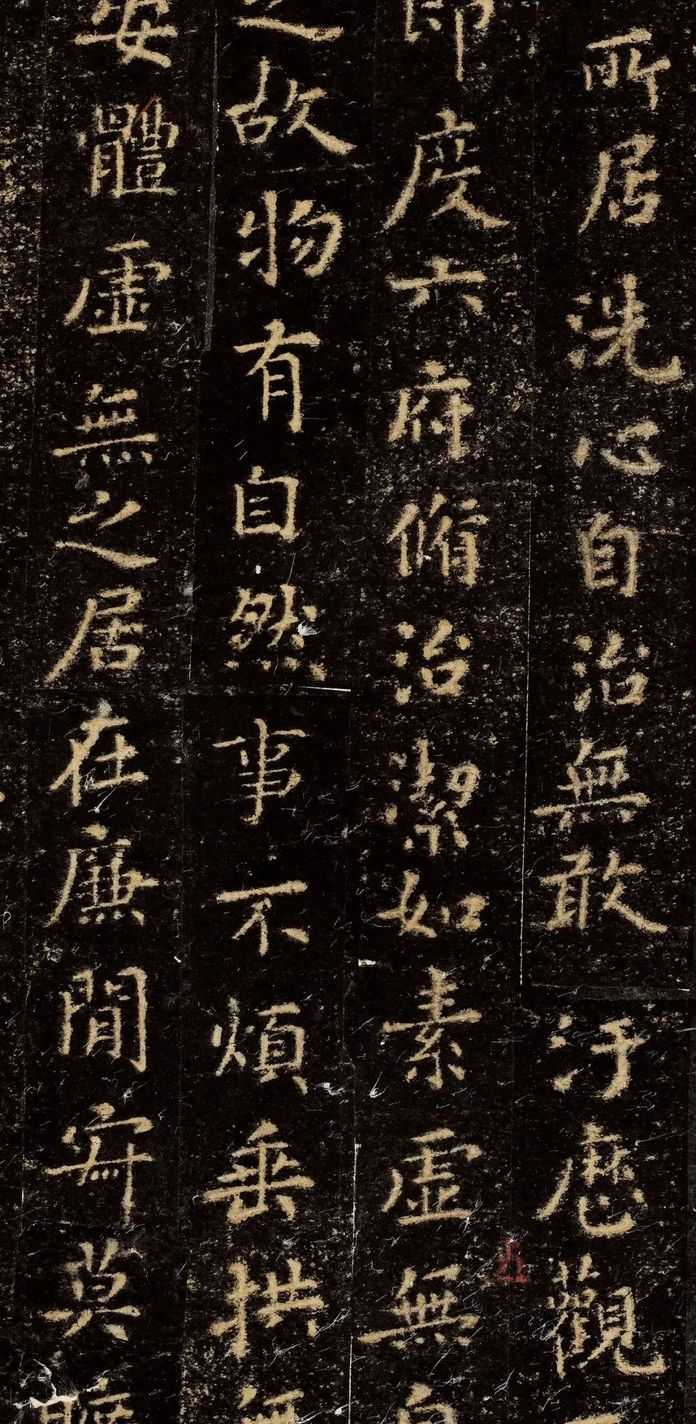 所居洗心自治無敢汙歷觀
即度六府脩治潔如素虛無自
之故物有自然事不煩垂拱無
安體虛無之居在廉閒寂莫曠